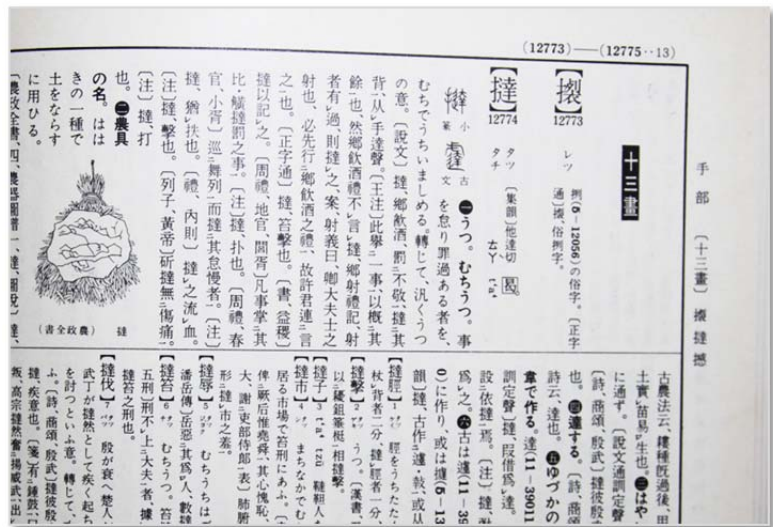 (12773)——(12775··13)
手部 〔十三畫〕 擨 撻 撼
十三畫
12773
レツ
捌(5-12056)の俗字。〔正字
通〕擨、俗捌字。
【撻】
12774
タツ
タチ
〔集韻〕他達切
ㄊㄚ t'a⁴
小篆
古文
㊀うつ。むちうつ。事
を怠り罪過ある者を、
むちでうちいましめる。轉じて、汎くうつ
の意。〔說文〕撻、鄕飮酒、罰不敬、撻其
背、从手達聲。〔王注〕此擧一事、以槪其
餘也、然鄕飮酒禮不言撻、鄕射禮記、射
者有過、則撻之、案、射義曰、卿大夫士之
射也、必先行鄕飮酒之禮、故許君連言
之也。〔正字通〕撻、笞擊也。〔書、益稷〕
撻以記之。〔周禮、地官、閭胥〕凡事掌其
比・觵撻罰之事。〔注〕撻、扑也。〔周禮、春
官、小胥〕巡舞列而撻其怠慢者。〔注〕
撻、猶抶也。〔禮、內則〕撻之流血。
〔注〕撻、擊也。〔列子、黃帝〕斫撻無傷痛。
〔注〕撻、打
也。㊁農具
の名。はは
きの一種で
土をならす
に用ひる。
撻 (農政全書)
〔農政全書、四、農器圖譜一、撻、圖說〕撻、
古農法云、耬種旣過後、用
土實、苗易生也。㊂はや
に通ず。〔說文通訓定聲
〔詩、商頌、殷武〕撻彼殷
也。㊃達する。〔詩、商頌
詩云、達也。㊄ゆづかの
韋で作る。達(11-39011
訓定聲〕撻、叚借爲達。
設依撻焉。〔注〕撻、
爲之。㊅古は𨔶(11-39
0)に作り、或は㩉(5-13
韻〕撻、古作𨔶、或从
【撻脛】1 脛をうちたた
杖背者二分、撻脛者一分、
【撻擊】2 うつ。〔漢書、
以耰鉏箠梃相撻擊。
【撻子】3 t'a⁴ tzŭ 韃靼人
【撻市】4 まちなかでむ
居る市場で笞刑にあふ。
俾厥后惟堯舜、其心愧恥、
大、謝吏部侍郎表〕肺腑
形撻市之羞。
【撻辱】5 むちうちはづ
潘岳傳〕岳惡其爲人、數撻
【撻笞】6 むちうつ。笞
五刑〕刑不上大夫者、據
撻笞之刑也。
【撻伐】7 殷が衰へ楚人
武丁が撻然として疾く起ち
を討つといふ意。轉じて、
ふ。〔詩、商頌、殷武〕撻彼殷
撻、疾意也。〔箋〕有鍾鼓
叛、高宗撻然奮揚威武、出